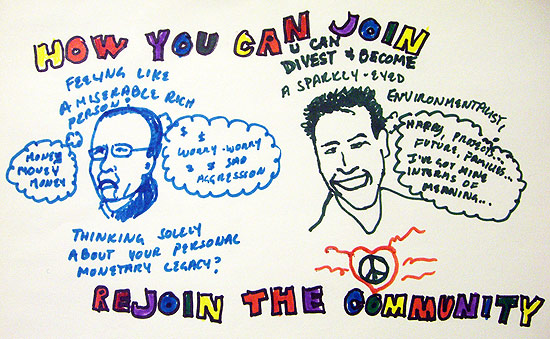 HOW YOU CAN JOIN
FEELING LIKE
A MISERABLE RICH
PERSON?
MONEY
MONEY
MONEY
$ $
WORRY-WORRY
$ $ SAD
AGGRESSION
THINKING SOLELY
ABOUT YOUR PERSONAL
MONETARY LEGACY?
U CAN
DIVEST & BECOME
A SPARKLY-EYED
ENVIRONMENTALIST,
HAPPY, PROTECT...
FUTURE, FAMILIES...
I'VE GOT MINE
INTERMS OF
MEANING...
REJOIN THE COMMUNITY